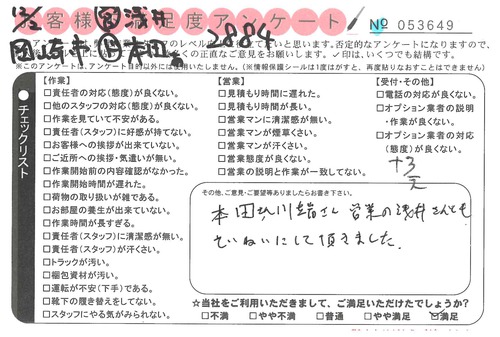 お客様満足度アンケート
No 053649
12/2 営 浅井
2884
※このアンケートは、アンケート目的以外には使用いたしません。(※情報保護シールは1度はがすと、再度貼りなおすことはできません)
チェックリスト
【作業】
□責任者の対応(態度)が良くない。
□他のスタッフの対応(態度)が良くない。
□作業を見ていて不安がある。
□責任者(スタッフ)に好感が持てない。
□お客様への挨拶が出来ていない。
□ご近所への挨拶・気遣いが無い。
□作業開始前の内容確認がなかった。
□作業開始時間が遅れた。
□荷物の取り扱いが雑である。
□お部屋の養生が出来ていない。
□作業時間が長すぎる。
□責任者(スタッフ)に清潔感が無い。
□責任者(スタッフ)が汗くさい。
□トラックが汚い。
□梱包資材が汚い。
□運転が不安(下手)である。
□靴下の履き替えをしてない。
□スタッフにやる気がみられない。
【営業】
□見積もり時間に遅れた。
□見積もり時間が長い。
□営業マンに清潔感が無い。
□営業マンが煙草くさい。
□営業マンが汗くさい。
□営業態度が良くない。
□営業の説明と作業が一致してない。
【受付・その他】
□電話の対応が良くない。
□オプション業者の説明
・作業が良くない。
□オプション業者の対応
(態度)が良くない。
その他、ご意見・ご要望等ありましたらお書き下さい。
営業の浅井さんとも
ていねいにして頂きました。
☆当社をご利用いただきまして、ご満足いただけたでしょうか?
□不満 □やや不満 □普通 □やや満足 ☑満足